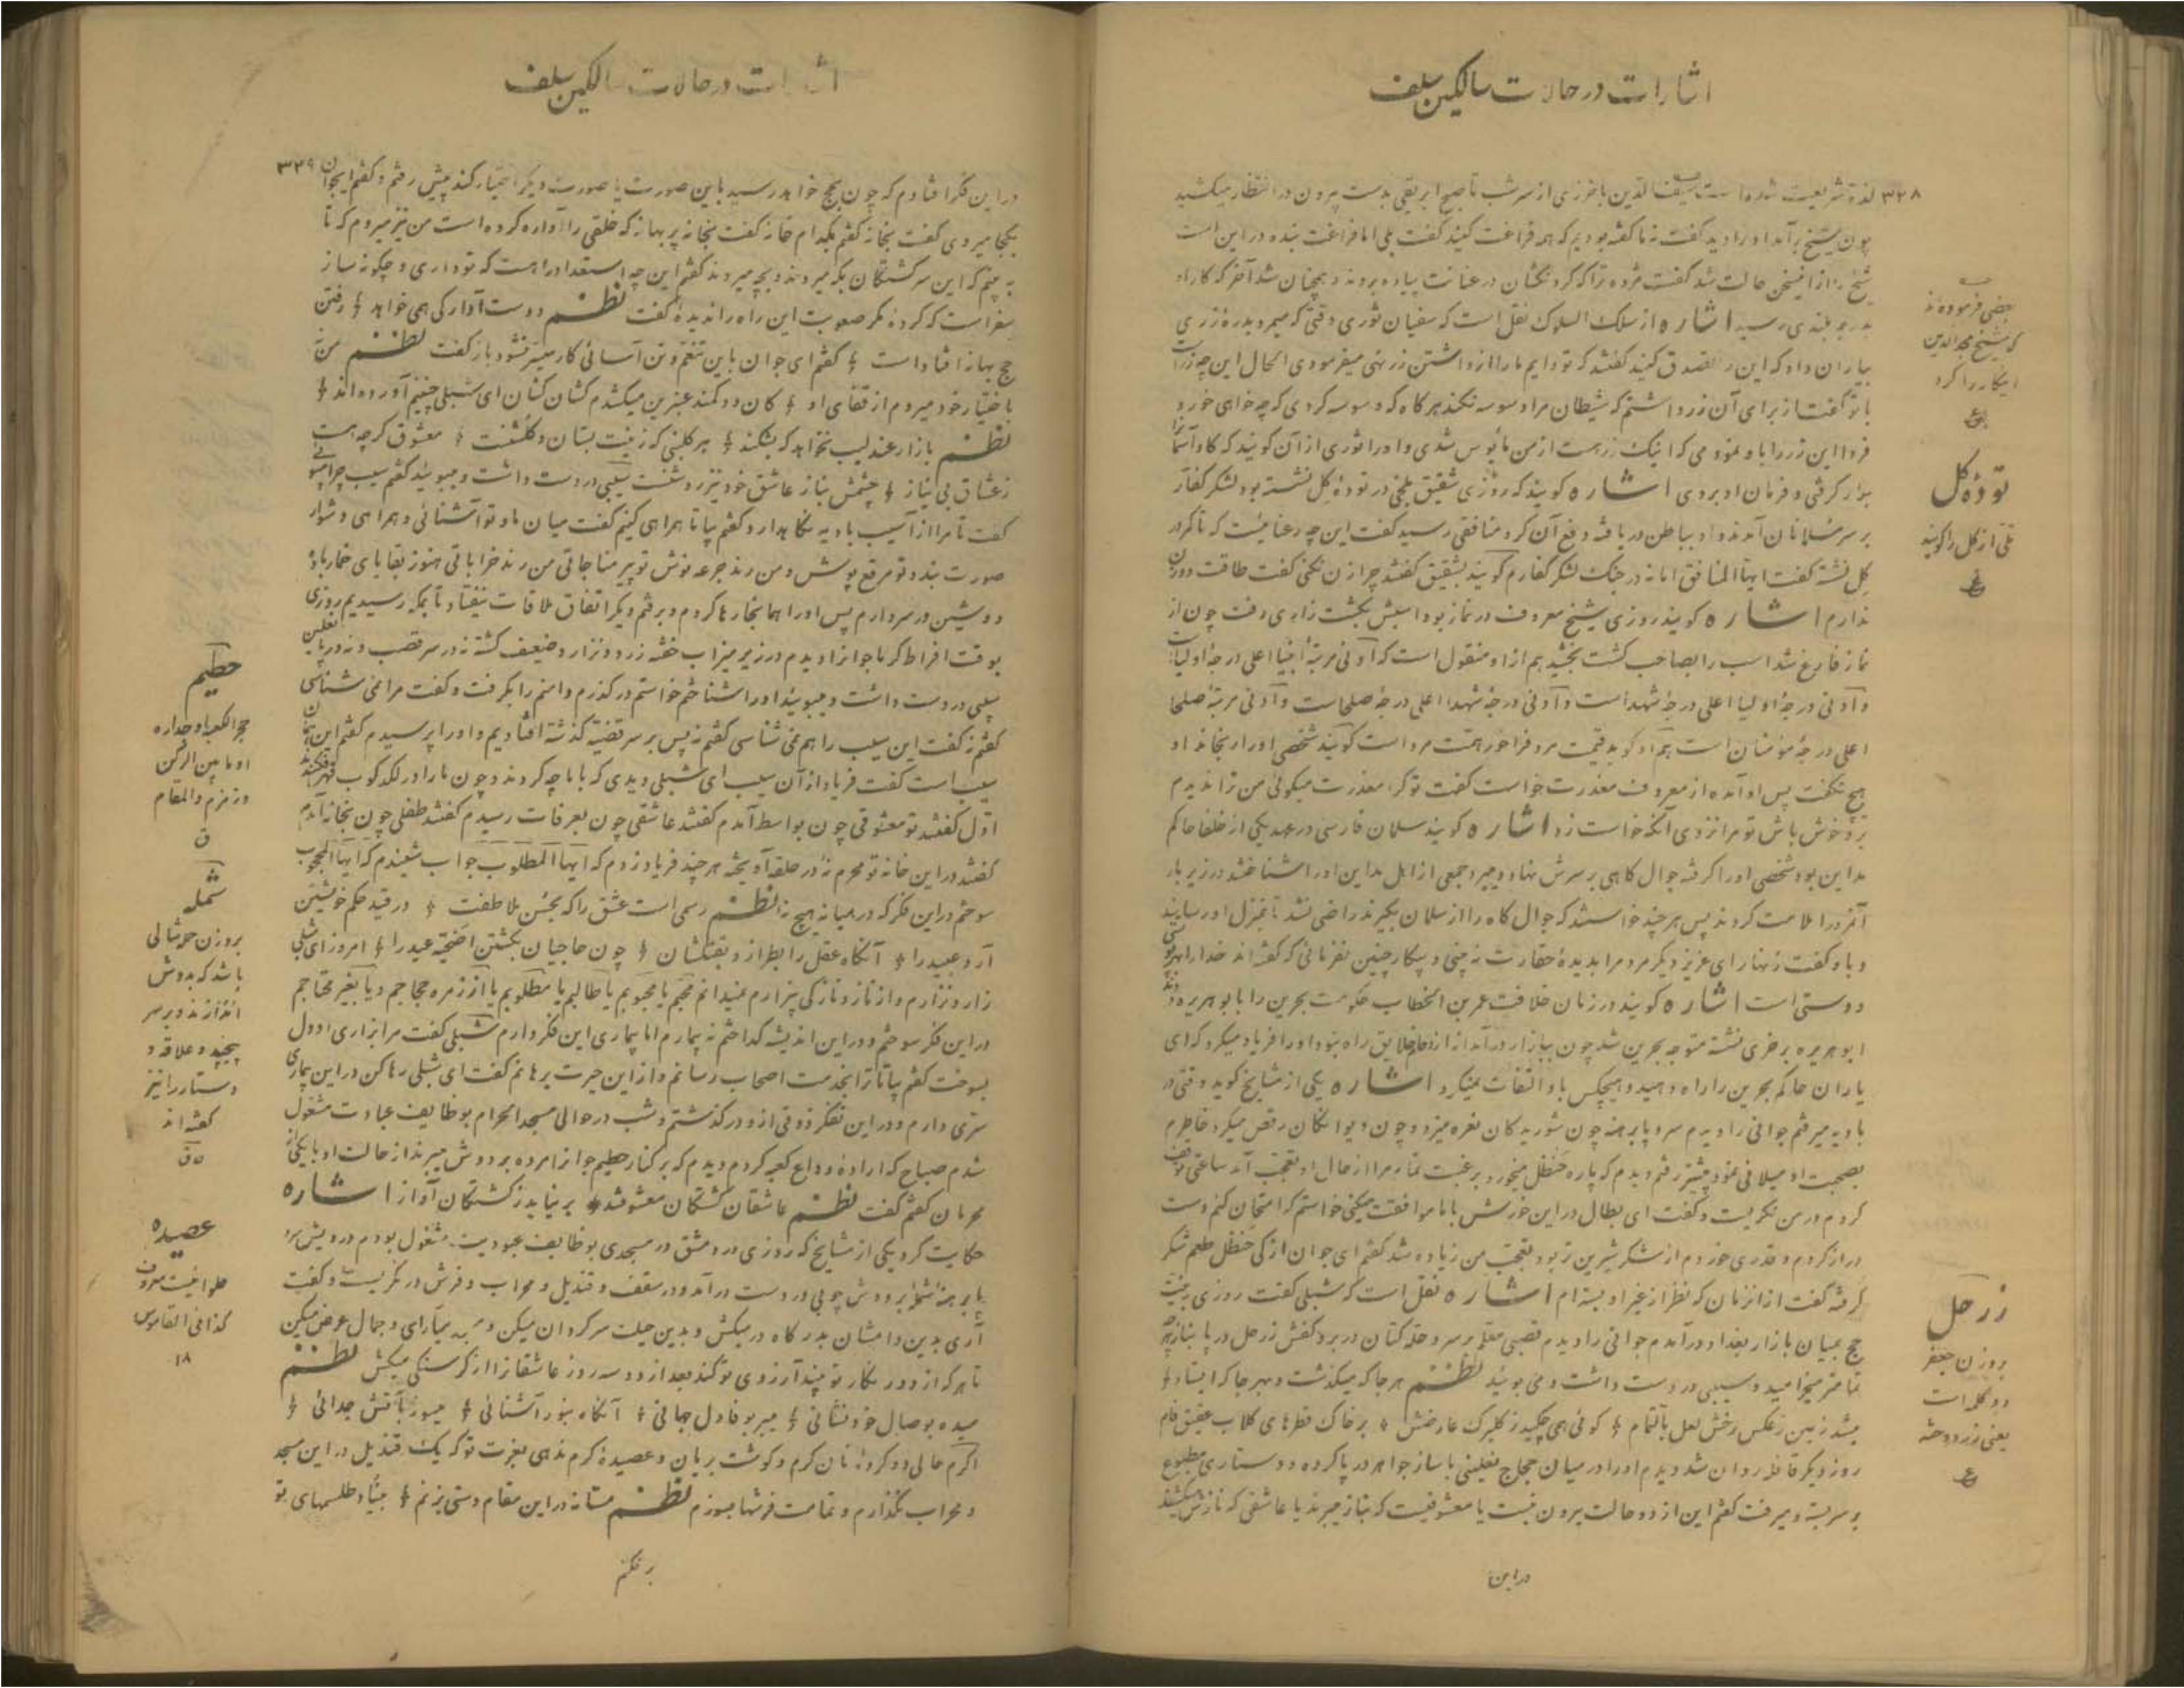 اشارات در حالات سالکین سلف
۳۲۸
چون شیخ برآمد او را دید گفت نه ما گفته بودیم که همه فراغت کنید گفت بلی اما فراغت بنده در این است
شیخ را از این سخن حالت شد گفت مژده ترا که
بدرجه بلندی رسید اشاره از سلک السلوک نقل است که سفیان ثوری وقتی که میمرد بدره زری
بیاران داد که این را تصدق کنید گفتند که تو دایم ما را از داشتن زر نهی میفرمودی الحال این چه زر است
با تو گفت از برای آن زر داشتم که شیطان مرا وسوسه نکند هرگاه که وسوسه کردی که چه خواهی خورد
فردا این زر را باو نمودمی که اینک زر است از من مأیوس شدی
اشاره گویند که روزی شقیق بلخی در توده گل نشسته بود لشکر کفار
بر سر مسلمانان آمدند او بباطن دریافته دفع آن کرد منافقی رسید گفت این چه رعنائیست که
گل نشسته گفت ایها المنافق
ندارم اشاره گویند روزی شیخ معروف در نماز بود اسبش بکشت زاری رفت چون از
نماز فارغ شد اسب را بصاحب کشت بخشید هم از او منقول است که ادنی مرتبه انبیا اعلی درجه اولیاست
و ادنی درجه اولیا اعلی درجه شهداست و ادنی درجه شهدا اعلی درجه صلحاست و ادنی مرتبه صلحا
اعلی درجه مؤمنان است هم او گوید قیمت مرد فراخور همت مرد است گویند شخصی او را رنجاند او
هیچ نگفت پس او آمده از معروف معذرت خواست گفت تو که را معذرت میگوئی من ترا ندیدم
برو خوش باش تو مرا نزدی آنکه خواست زد اشاره گویند سلمان فارسی در عهد یکی از خلفا حاکم
مداین بود شخصی او را گرفته جوال کاهی بر سرش نهاد و میبرد جمعی از اهل مداین او را شناختند در زیر بار
آنمرد را ملامت کردند پس هر چند خواستند که جوال کاه را از سلمان بگیرند راضی نشد تا بمنزل او رسانید
و باو گفت زنهار ای عزیز دیگر مردم را بدیده حقارت نه بینی
دوستی است اشاره گویند در زمان خلافت عمر بن الخطاب حکومت بحرین را بابو هریره دادند
ابو هریره بر خری نشسته متوجه بحرین شد چون ببازار درآمد از ازدحام خلایق راه نبود او را فریاد میکرد که ای
یاران حاکم بحرین را راه دهید و هیچکس باو التفات نمیکرد اشاره یکی از مشایخ گوید وقتی در
بادیه میرفتم جوانی را دیدم سر و پا برهنه چون شوریدگان نعره میزد و چون دیوانگان رقص میکرد خاطرم
بصحبت او میلانی نمود پیشتر رفتم دیدم که پاره حنظل میخورد برغبت تمام مرا از حال او تعجب آمد ساعتی توقف
کردم در من نگریست و گفت ای بطال در این خورش با ما موافقت میکنی خواستم که امتحان کنم دست
دراز کردم و قدری خوردم از شکر شیرین تر بود تعجب من زیاده شد گفتم ای جوان از کی حنظل طعم شکر
گرفته گفت از آنزمان که نظر از غیر او بسته‌ام اشاره نقل است که شبلی گفت روزی بنیت
حج بمیان بازار بغداد درآمدم جوانی را دیدم قصبی معلم بر سر و حله کتان در بر و کفش زرحل در پا بناز چه
تمامتر میخرامید و سیبی در دست داشت و می بوئید نظم هر جا که میگذشت و بهر جا که ایستاد
میشد زمین ز عکس رخش لعل بالتمام گوئی همی چکید ز گلبرک عارضش بر خاک قطرهای گلاب عقیق فام
روز دیگر قافله روان شد دیدم او را در میان حجاج نعلینی با ساز جواهر در پا کرده و دستاری مطبوع
بر سر بسته و میرفت گفتم این از دو حالت بیرون نیست یا معشوقیست که بناز میبرند یا عاشقی که نازش میکشند
در این
بعضی فرموده‌اند
که شیخ مجد الدین
اینکار را کرد
توده گل
تلی از گل را گویند
زرحل
بروزن جعفر
دو کلمه است
یعنی زر دوخته
اشارات در حالات سالکین سلف
۳۲۹
در این فکر افتادم که چون بحج خواهد رسید باین صورت یا صورت دیگر اختیار کند پیش رفتم و گفتم ایجوان
بکجا میروی گفت بخانه گفتم بکدام خانه گفت بخانه پر بهانه که خلقی را آواره کرده است من نیز میروم که تا
به بینم که این سرگشتگان بکه میروند و بچه میروند گفتم این چه استعداد راهست که تو داری و چگونه ساز
سفر است که کرده مگر صعوبت این راه را ندیده گفت نظم دوست آوارگی همی خواهد رفتن
حج بهانه افتاده است گفتم ای جوان باین تنعم و تن آسانی کار میسر نشود باز گفت نظم من نه
باختیار خود میروم از قفای او کان دو کمند عنبرین میکشدم کشان کشان ای شبلی چنینم آورده‌اند
نظم بازار عندلیب نخواهد که بشکند هر گلبنی که زینت بستان و گلشنست معشوق گر چه هست
ز عشاق بی نیاز چشمش بناز عاشق خود نیز روشنست سیبی در دست داشت و میبوئید گفتم سیب چرا میبوئی
گفت تا مرا از آسیب بادیه نگاهدارد گفتم بیا تا همراهی کنیم گفت میان ما و تو آشنائی و همراهی دشوار
صورت بندد تو مرقع پوش و من رند جرعه نوش تو پیر مناجاتی من رند خراباتی هنوز بقایای خمار باده
دوشین در سر دارم پس او را همانجا رها کردم و برفتم دیگر اتفاق ملاقات نیفتاد تا بمکه رسیدیم روزی
بوقت افراط گرما جوانرا دیدم در زیر میزاب خفته زرد و نزار و ضعیف گشته نه در سر قصب و نه در پا نعلین
سیبی در دست داشت و میبوئید او را شناختم خواستم درگذرم دامنم را بگرفت و گفت مرا نمی شناسی
گفتم نه گفت این سیب را هم نمی شناسی گفتم نه پس بر سر قضیه گذشته افتادیم و او را پرسیدم گفتم این همان
سیب است گفت فریاد از آن سیب ای شبلی دیدی که با ما چه کردند و چون ما را در لگدکوب قهر افکندند
اول گفتند تو معشوقی چون بواسط آمدم گفتند عاشقی چون بعرفات رسیدم گفتند طفلی چون بخانه آمدم
گفتند در این خانه تو محرم نه در حلقه آویخته هر چند فریاد زدم که ایها المطلوب جواب شنیدم که ایها المحجوب
سوختم در این فکر که در میانه هیچ نه نظم رسمی است عشق را که بحسن ملاطفت در قید حکم خویشتن
آرد عبید را آنگاه عقل را بطرازد بقتلشان چون حاجیان بکشتن اضحیه عید را امروز ای شبلی
زار و نزارم و از ناز و نازکی بیزارم نمیدانم محبم یا محبوبم یا طالبم یا مطلوبم یا از زمره حجاجم و یا بغیر محتاجم
در این فکر سوختم و در این اندیشه گداختم نه بیمارم اما بیماری این فکر دارم شبلی گفت مرا بزاری او دل
بسوخت گفتم بیا تا ترا بخدمت اصحاب رسانم و از این حیرت برهانم گفت ای شبلی رها کن در این بیماری
سری دارم و در این تفکر ذوقی از او درگذشتم و شب در حوالی مسجد الحرام بوظایف عبادت مشغول
شدم صباح که اراده وداع کعبه کردم دیدم که بر کنار حطیم جوانرا مرده بر دوش میبرند از حالت او با یکی از
محرمان گفتم گفت نظم عاشقان کشتگان معشوقند بر نیاید ز کشتگان آواز اشاره
حکایت کرد یکی از مشایخ که روزی در دمشق در مسجدی بوظایف عبودیت مشغول بودم درویش سر و
پا برهنه شمله بر دوش چوبی در دست درآمد و در سقف و قندیل و محراب و فرش در نگریست و گفت
آری بدین دامشان بدرگاه در میکش و بدین حیلت سرگردان میکن و میارای و جمال عرض میکن
تا هر که از دور نگار تو بیند آرزوی تو کند بعد از دو سه روز عاشقانرا از گرسنگی میکش نظم
میده بوصال خود نشانی میبر بوفا دل جهانی آنگاه بنور آشنائی میسوز بآتش جدائی
اگرم حالی دو گرده نان گرم و گوشت بریان و عصیده گرم ندهی بعزت تو که یک قندیل در این مسجد
و محراب نگذارم و تمامت فرشها بسوزم نظم مستانه در این مقام دستی بزنم بنیاد طلسمهای تو
بر فکنم
حطیم
حجر الکعبه او جداره
او ما بین الرکن
و زمزم و المقام
ق
شمله
بروزن حمله شالی
باشد که بدوش
اندازند و بر سر
پیچند و علاقه و
دستار را نیز
گفته‌اند
عصیده
حلوائیست معروف
کذا فی القاموس
۱۸